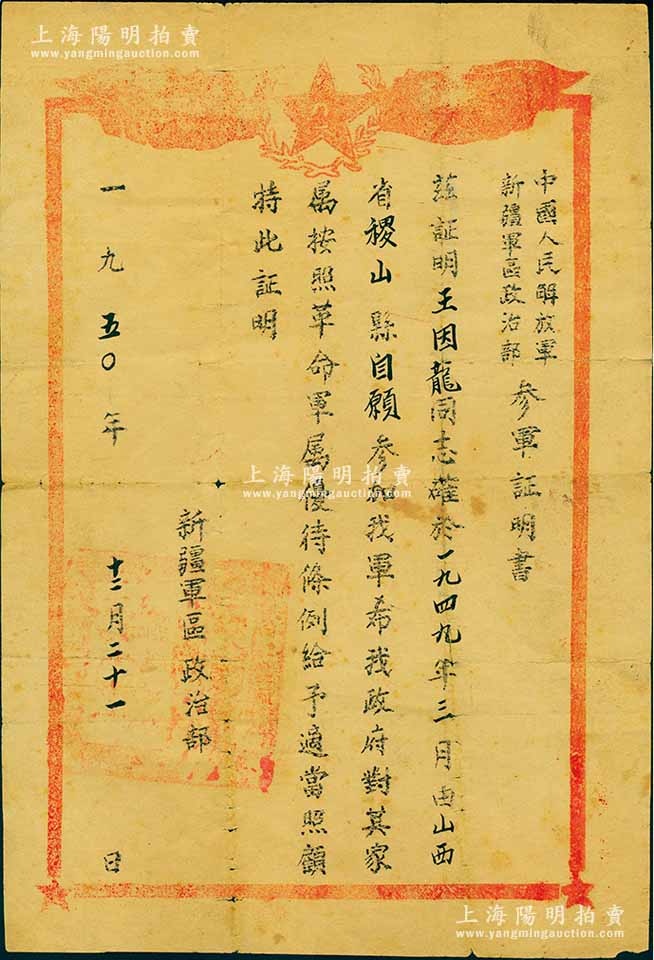 上海陽明拍賣
www.yangmingauction.com
中國人民解放軍
新疆軍區政治部
参軍証明書
茲証明王因龍同志確於一九四九年三月由山西
省稷山縣自願参加我軍希我政府對其家
属按照革命軍属優待條例給予適當照顧
特此証明
新疆軍區政治部
一九五〇年十二月二十一日
上海陽明拍賣
www.yangmingauction.com
上海陽明拍賣
www.yangmingauction.com